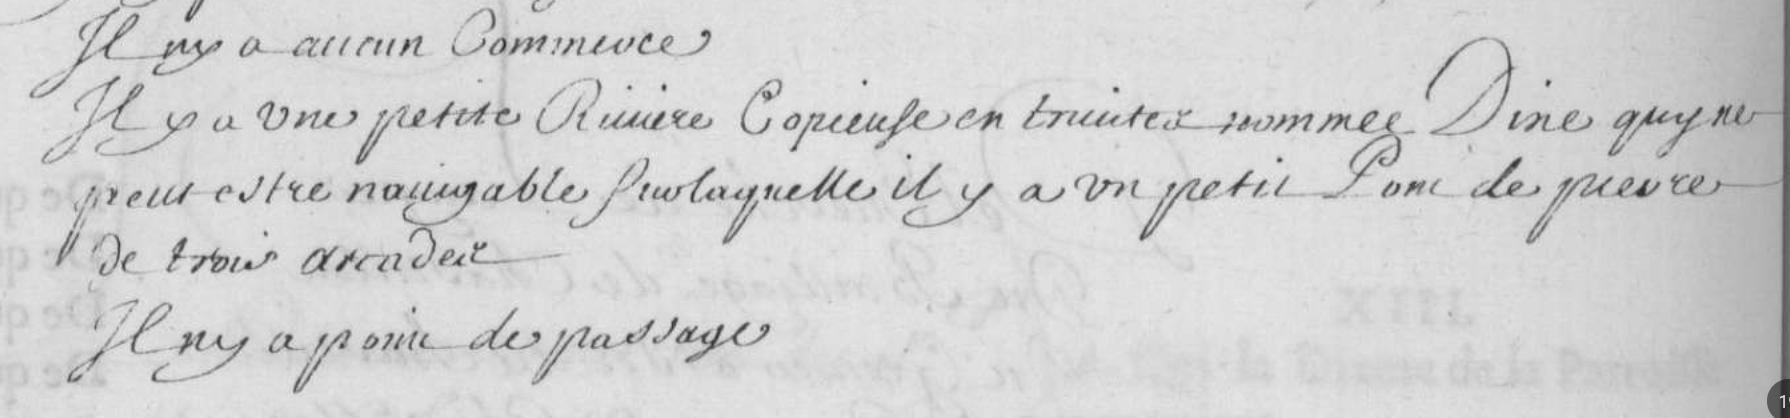 Il ny a aucun Commerce
Il y a une petite Riuiere Copieuse en truites nommee Dine quy ne
peut estre nauigable sur laquelle il y a un petit Pont de pierre
de trois arcades
Il ny a point de passage